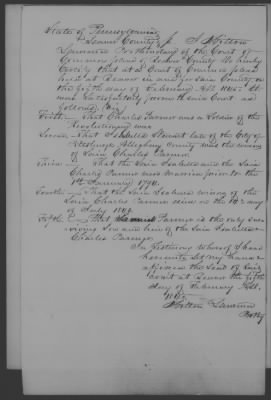 State of Pennsylvania
Beaver County ss. I Milton
Lawrence Prothonotary of the Court of
Common Pleas of Beaver County Do hereby
Certify that at a Court of Common Pleas
held at Beaver in and for said County on
the fifth day of February A.D. It
was satisfactorily proven to the said Court as
follows (viz)
First — That Charles Parmer was a Soldier of the
Revolutionary war
Second — That late of the City of
Pittsburgh Allegheny County was the widow
of said Charles Parmer.
Third — That the said and the said
Charles Parmer was Married prior to the
1st January 1794.
Fourth — That the said widow of the
said Charles Parmer died on the day
of July
Fifth — That Parmer is the only sur
viving and heir of the said
Charles Parmer
In testimony whereof I have
hereunto set my hand
Given the Seal of said
Court at Beaver the fifth
day of February A.D.
Milton Lawrence
Prothy